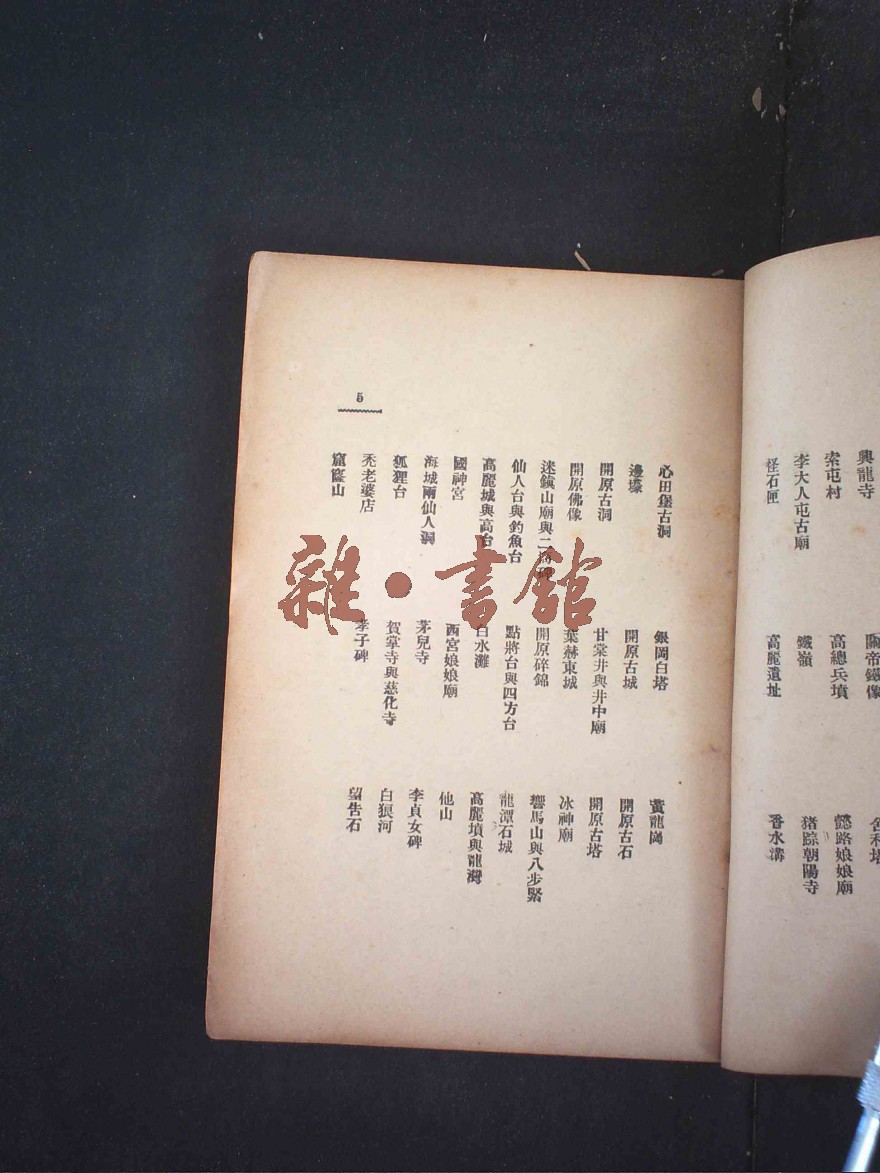 興龍寺
關帝鐵像
舍利塔
索屯村
高總兵墳
懿路娘娘廟
李大人屯古廟
鐵嶺
猪踪朝陽寺
怪石匣
高麗遺址
香水溝
5
心田堡古洞
銀岡白塔
黃龍岡
邊壕
開原古城
開原古石
開原古洞
甘棠井與井中廟
開原古塔
開原佛像
葉赫東城
冰神廟
迷鎮山廟與二
開原碎錦
響馬山與八步緊
仙人台與釣魚台
點將台與四方台
龍潭石城
高麗城與高台
白水灘
高麗墳與龍灣
國神宮
西宮娘娘廟
他山
海城兩仙人洞
茅兒寺
李貞女碑
狐狸台
賀掌寺與慈化寺
白狼河
禿老婆店
孝子碑
望告石
窟窿山
雜·書館